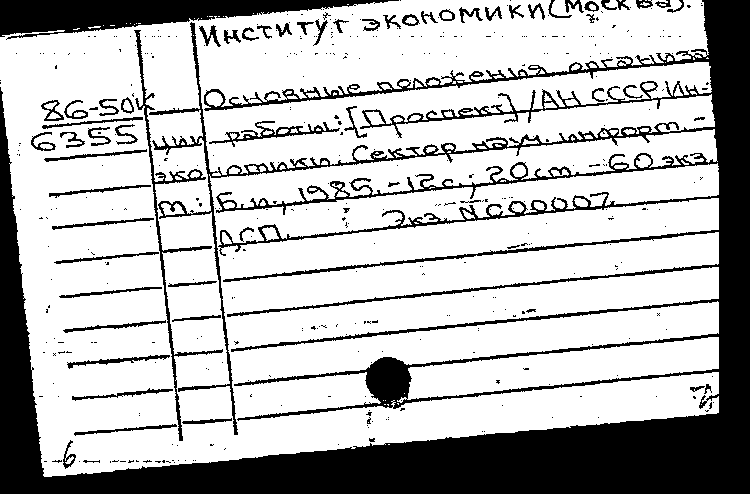 Институт экономики (Москва).
86-50К
6355
Основные положения организа
ции работы: [Проспект] / АН СССР, Ин-
экономики. Сектор науч. информ. -
т.: Б.и., 1985. - 12 с.; 20 см. - 60 экз.
ДСП. Экз. N 000007.
6